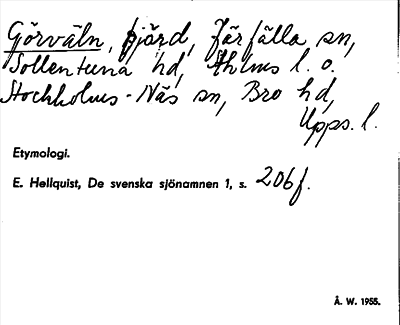 Görväln, fjärd, Järfälla sn,
Sollentuna hd, Sthlms l. o.
Stockholms-Näs sn, Bro hd,
Upps. l.
Etymologi.
E. Hellquist, De svenska sjönamnen 1, s. 206 f.
Å. W. 1955.